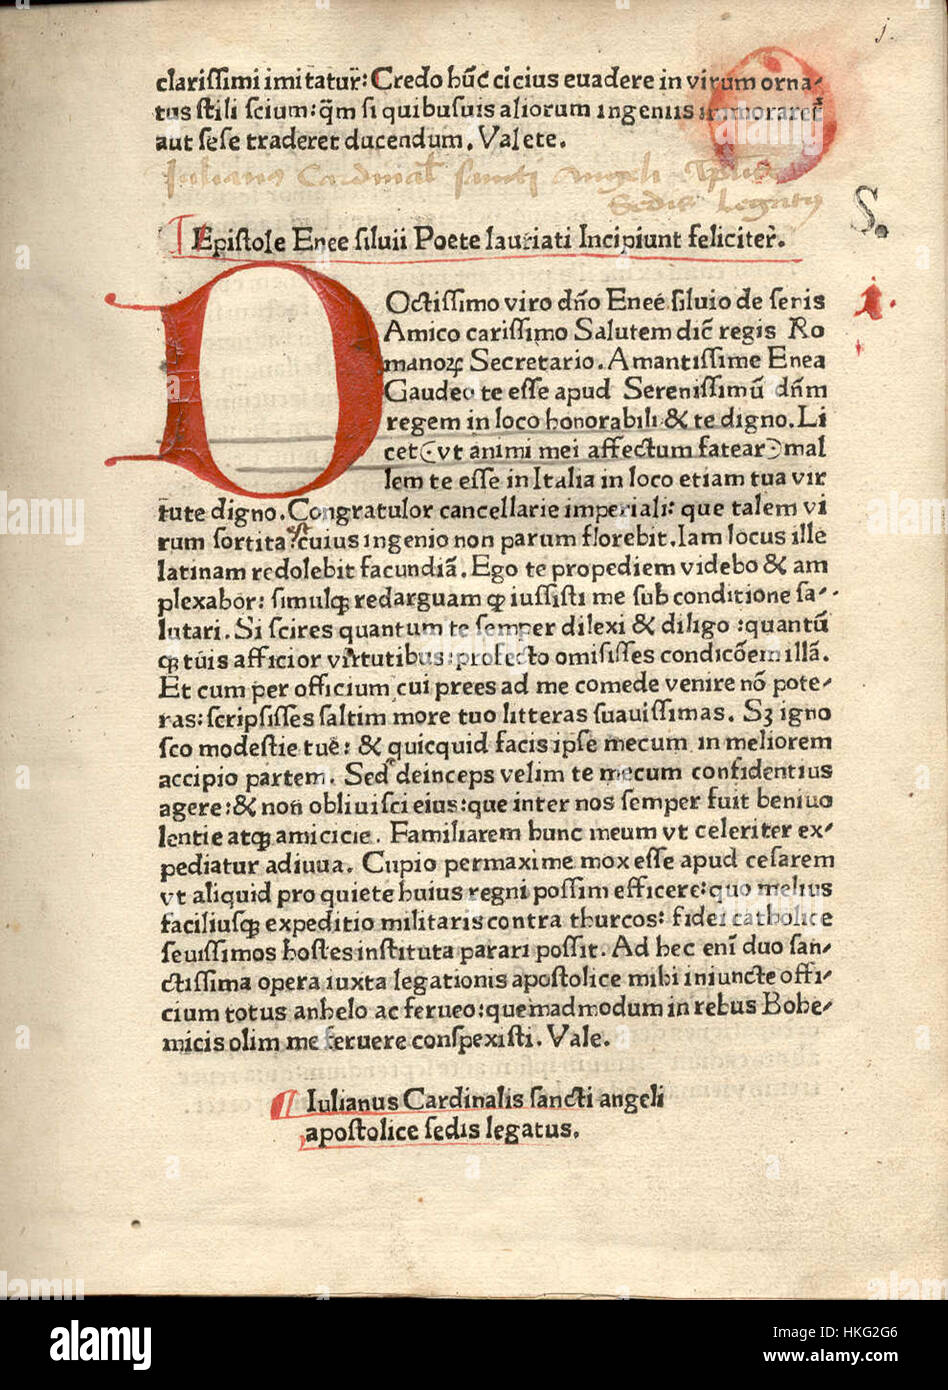 j.
clarissimi imitatur̃: Credo hũc cicius euadere in virum orna-
tus stili scium: q̃m si quibusuis aliorum ingeniis immoraret̃
aut sese traderet ducendum. Valete.
Iulianus Cardinal̃ sancti Angeli
Sedis Legatus
S.
Epistole Enee siluii Poete lauriati Incipiunt feliciter̃.
DOctissimo viro dño Eneé siluio de senis
1.
Amico carissimo Salutem dic̃ regis Ro
manoꝝ Secretario. Amantissime Enea
Gaudeo te esse apud Serenissimũ dñm
regem in loco honorabili & te digno. Li
cet (vt animi mei affectum fatear) mal
lem te esse in Italia in loco etiam tua vir
tute digno. Congratulor cancellarie imperiali: que talem vi
rum sortita est cuius ingenio non parum florebit. Iam locus ille
latinam redolebit facundiã. Ego te propediem videbo & am
plexabor: simulqꝫ redarguam ꝙ iussisti me sub conditione sa-
lutari. Si scires quantum te semper dilexi & diligo: quantũ
qꝫ tuis afficior virtutibus: profecto omisisses condicõem illã.
Et cum per officium cui prees ad me comede venire nõ pote-
ras: scripsisses saltim more tuo litteras suauissimas. Sꝫ igno
sco modestie tue: & quicquid facis ipse mecum in meliorem
accipio partem. Sed deinceps velim te mecum confidentius
agere: & non obliuisci eius: que inter nos semper fuit beniuo
lentie atqꝫ amicicie. Familiarem hunc meum vt celeriter ex-
pediatur adiuua. Cupio permaxime mox esse apud cesarem
vt aliquid pro quiete huius regni possim efficere: quo melius
faciliusqꝫ expeditio militaris contra thurcos: fidei catholice
seuissimos hostes instituta parari possit. Ad hec eni̅ duo san-
ctissima opera iuxta legationis apostolice mihi iniuncte offi-
cium totus anhelo ac ferueo: quemadmodum in rebus Bohe-
micis olim me feruere conspexisti. Vale.
Iulianus Cardinalis sancti angeli
apostolice sedis legatus.
alamy
Image ID: HKG2G6
www.alamy.com